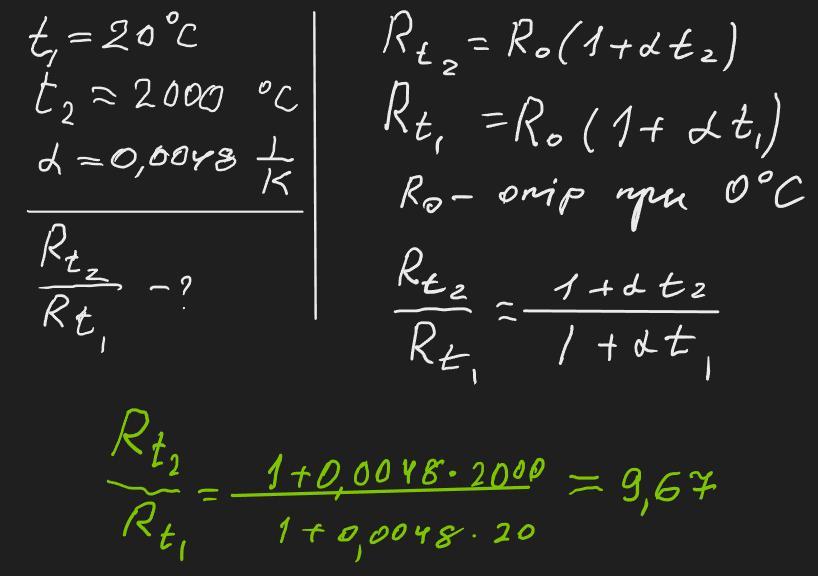 t₁ = 20°C
t₂ = 2000 °C
α = 0,0048 1/K
Rt₂/Rt₁ - ?
Rt₂ = R₀(1+αt₂)
Rt₁ = R₀(1+αt₁)
R₀ - опір при 0°C
Rt₂/Rt₁ = (1+αt₂)/(1+αt₁)
Rt₂/Rt₁ = (1+0,0048·2000)/(1+0,0048·20) = 9,67